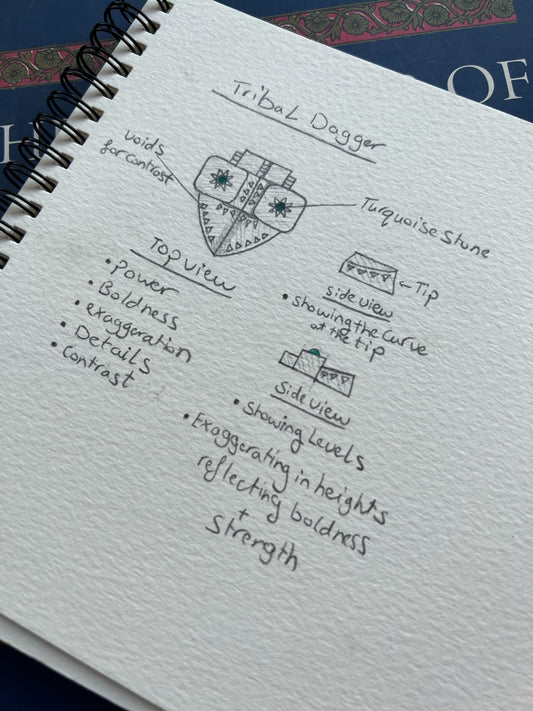 OF
H
Tribal Dagger
voids
for contrast
Turquoise Stone
Top view
• Power
• Boldness
• exaggeration
• Details
• contrast
← Tip
side view
• showing the curve
at the tip
Side view
• showing Levels
• Exaggerating in heights
reflecting boldness
+
Strength